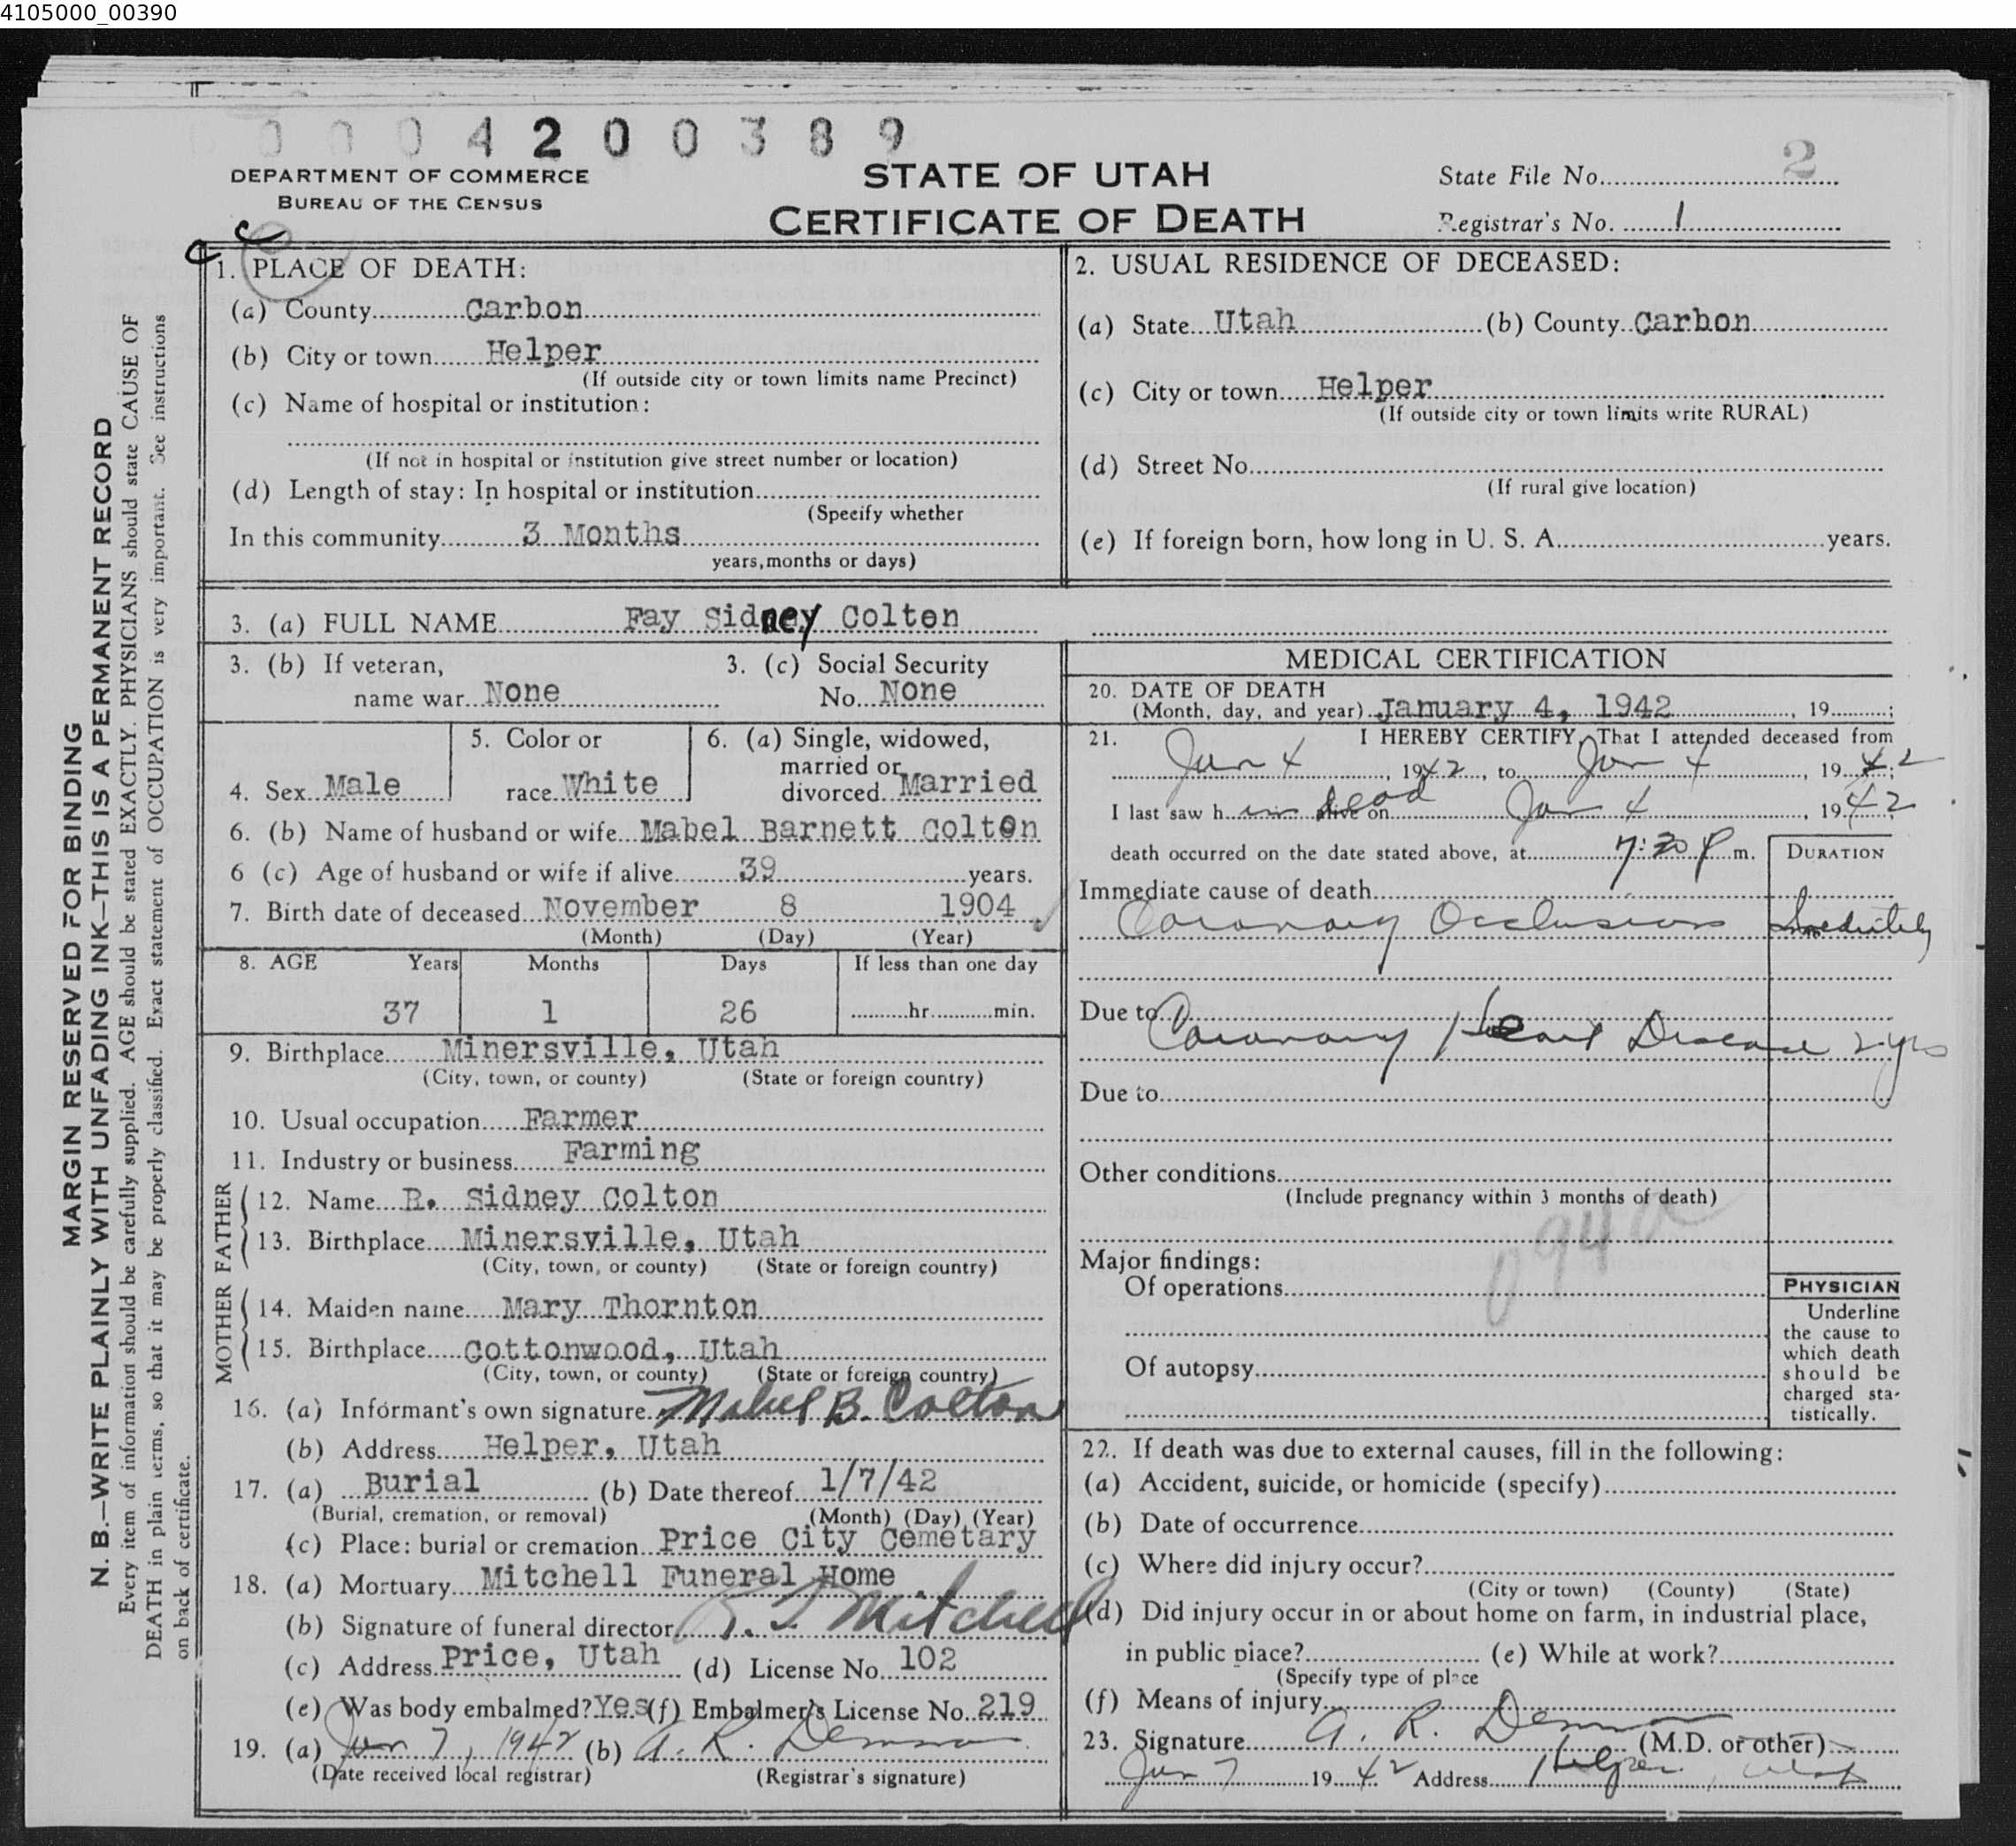 4105000_00390
0 0 0 4 2 0 0 3 8 9
2
DEPARTMENT OF COMMERCE
BUREAU OF THE CENSUS
STATE OF UTAH
CERTIFICATE OF DEATH
State File No.
Registrar's No. 1
MARGIN RESERVED FOR BINDING
N. B.—WRITE PLAINLY WITH UNFADING INK—THIS IS A PERMANENT RECORD
Every item of information should be carefully supplied. AGE should be stated EXACTLY. PHYSICIANS should state CAUSE OF
DEATH in plain terms, so that it may be properly classified. Exact statement of OCCUPATION is very important. See instructions
on back of certificate.
1. PLACE OF DEATH:
(a) County Carbon
(b) City or town Helper
(If outside city or town limits name Precinct)
(c) Name of hospital or institution:
(If not in hospital or institution give street number or location)
(d) Length of stay: In hospital or institution
(Specify whether
In this community 3 Months
years, months or days)
2. USUAL RESIDENCE OF DECEASED:
(a) State Utah (b) County Carbon
(c) City or town Helper
(If outside city or town limits write RURAL)
(d) Street No.
(If rural give location)
(e) If foreign born, how long in U. S. A. years.
3. (a) FULL NAME Fay Sidney Colten
3. (b) If veteran,
name war None
3. (c) Social Security
No. None
4. Sex Male
5. Color or
race White
6. (a) Single, widowed,
married or
divorced Married
6. (b) Name of husband or wife Mabel Barnett Colton
6 (c) Age of husband or wife if alive 39 years.
7. Birth date of deceased November 8 1904
(Month) (Day) (Year)
8. AGE Years Months Days If less than one day
37 1 26 hr. min.
9. Birthplace Minersville, Utah
(City, town, or county) (State or foreign country)
10. Usual occupation Farmer
11. Industry or business Farming
FATHER
12. Name R. Sidney Colton
13. Birthplace Minersville, Utah
(City, town, or county) (State or foreign country)
MOTHER
14. Maiden name Mary Thornton
15. Birthplace Cottonwood, Utah
(City, town, or county) (State or foreign country)
16. (a) Informant's own signature Mabel B. Colton
(b) Address Helper, Utah
17. (a) Burial (b) Date thereof 1/7/42
(Burial, cremation, or removal) (Month) (Day) (Year)
(c) Place: burial or cremation Price City Cemetary
18. (a) Mortuary Mitchell Funeral Home
(b) Signature of funeral director Mitchell
(c) Address Price, Utah (d) License No. 102
(e) Was body embalmed? Yes (f) Embalmer's License No. 219
19. (a) Jan 7, 1942 (b) A. R. Demman
(Date received local registrar) (Registrar's signature)
MEDICAL CERTIFICATION
20. DATE OF DEATH
(Month, day, and year) January 4, 1942, 19 ;
21. I HEREBY CERTIFY, That I attended deceased from
Jan 4, 1942, to Jan 4, 1942;
I last saw him dead alive on Jan 4, 1942
death occurred on the date stated above, at 7:30 P m.
DURATION
Immediate cause of death
Coronary Occlusion Immediately
Due to
Coronary Heart Disease 2 yrs
Due to
Other conditions
(Include pregnancy within 3 months of death)
094a
Major findings:
Of operations
Of autopsy
PHYSICIAN
Underline
the cause to
which death
should be
charged sta-
tistically.
22. If death was due to external causes, fill in the following:
(a) Accident, suicide, or homicide (specify)
(b) Date of occurrence
(c) Where did injury occur?
(City or town) (County) (State)
(d) Did injury occur in or about home on farm, in industrial place,
in public place? (e) While at work?
(Specify type of place
(f) Means of injury
23. Signature A. R. Demman (M.D. or other)
Jan 7 1942 Address Helper, Utah